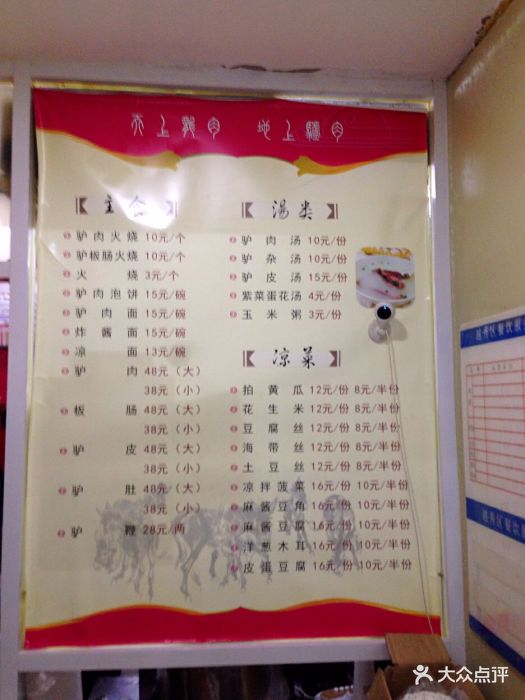 天上龍肉 地上驢肉
主食
驴肉火烧 10元/个
驴板肠火烧 10元/个
火烧 3元/个
驴肉泡饼 15元/碗
驴肉面 15元/碗
炸酱面 15元/碗
凉面 13元/碗
驴肉 48元（大）
38元（小）
板肠 48元（大）
38元（小）
驴皮 48元（大）
38元（小）
驴肚 48元（大）
38元（小）
驴鞭 28元/两
汤类
驴肉汤 10元/份
驴杂汤 10元/份
驴皮汤 15元/份
紫菜蛋花汤 4元/份
玉米粥 3元/份
凉菜
拍黄瓜 12元/份 8元/半份
花生米 12元/份 8元/半份
豆腐丝 12元/份 8元/半份
海带丝 12元/份 8元/半份
土豆丝 12元/份 8元/半份
凉拌菠菜 16元/份 10元/半份
麻酱豆角 16元/份 10元/半份
麻酱豆腐 16元/份 10元/半份
洋葱木耳 16元/份 10元/半份
皮蛋豆腐 16元/份 10元/半份
越秀区餐饮服
越秀区餐饮
大众点评